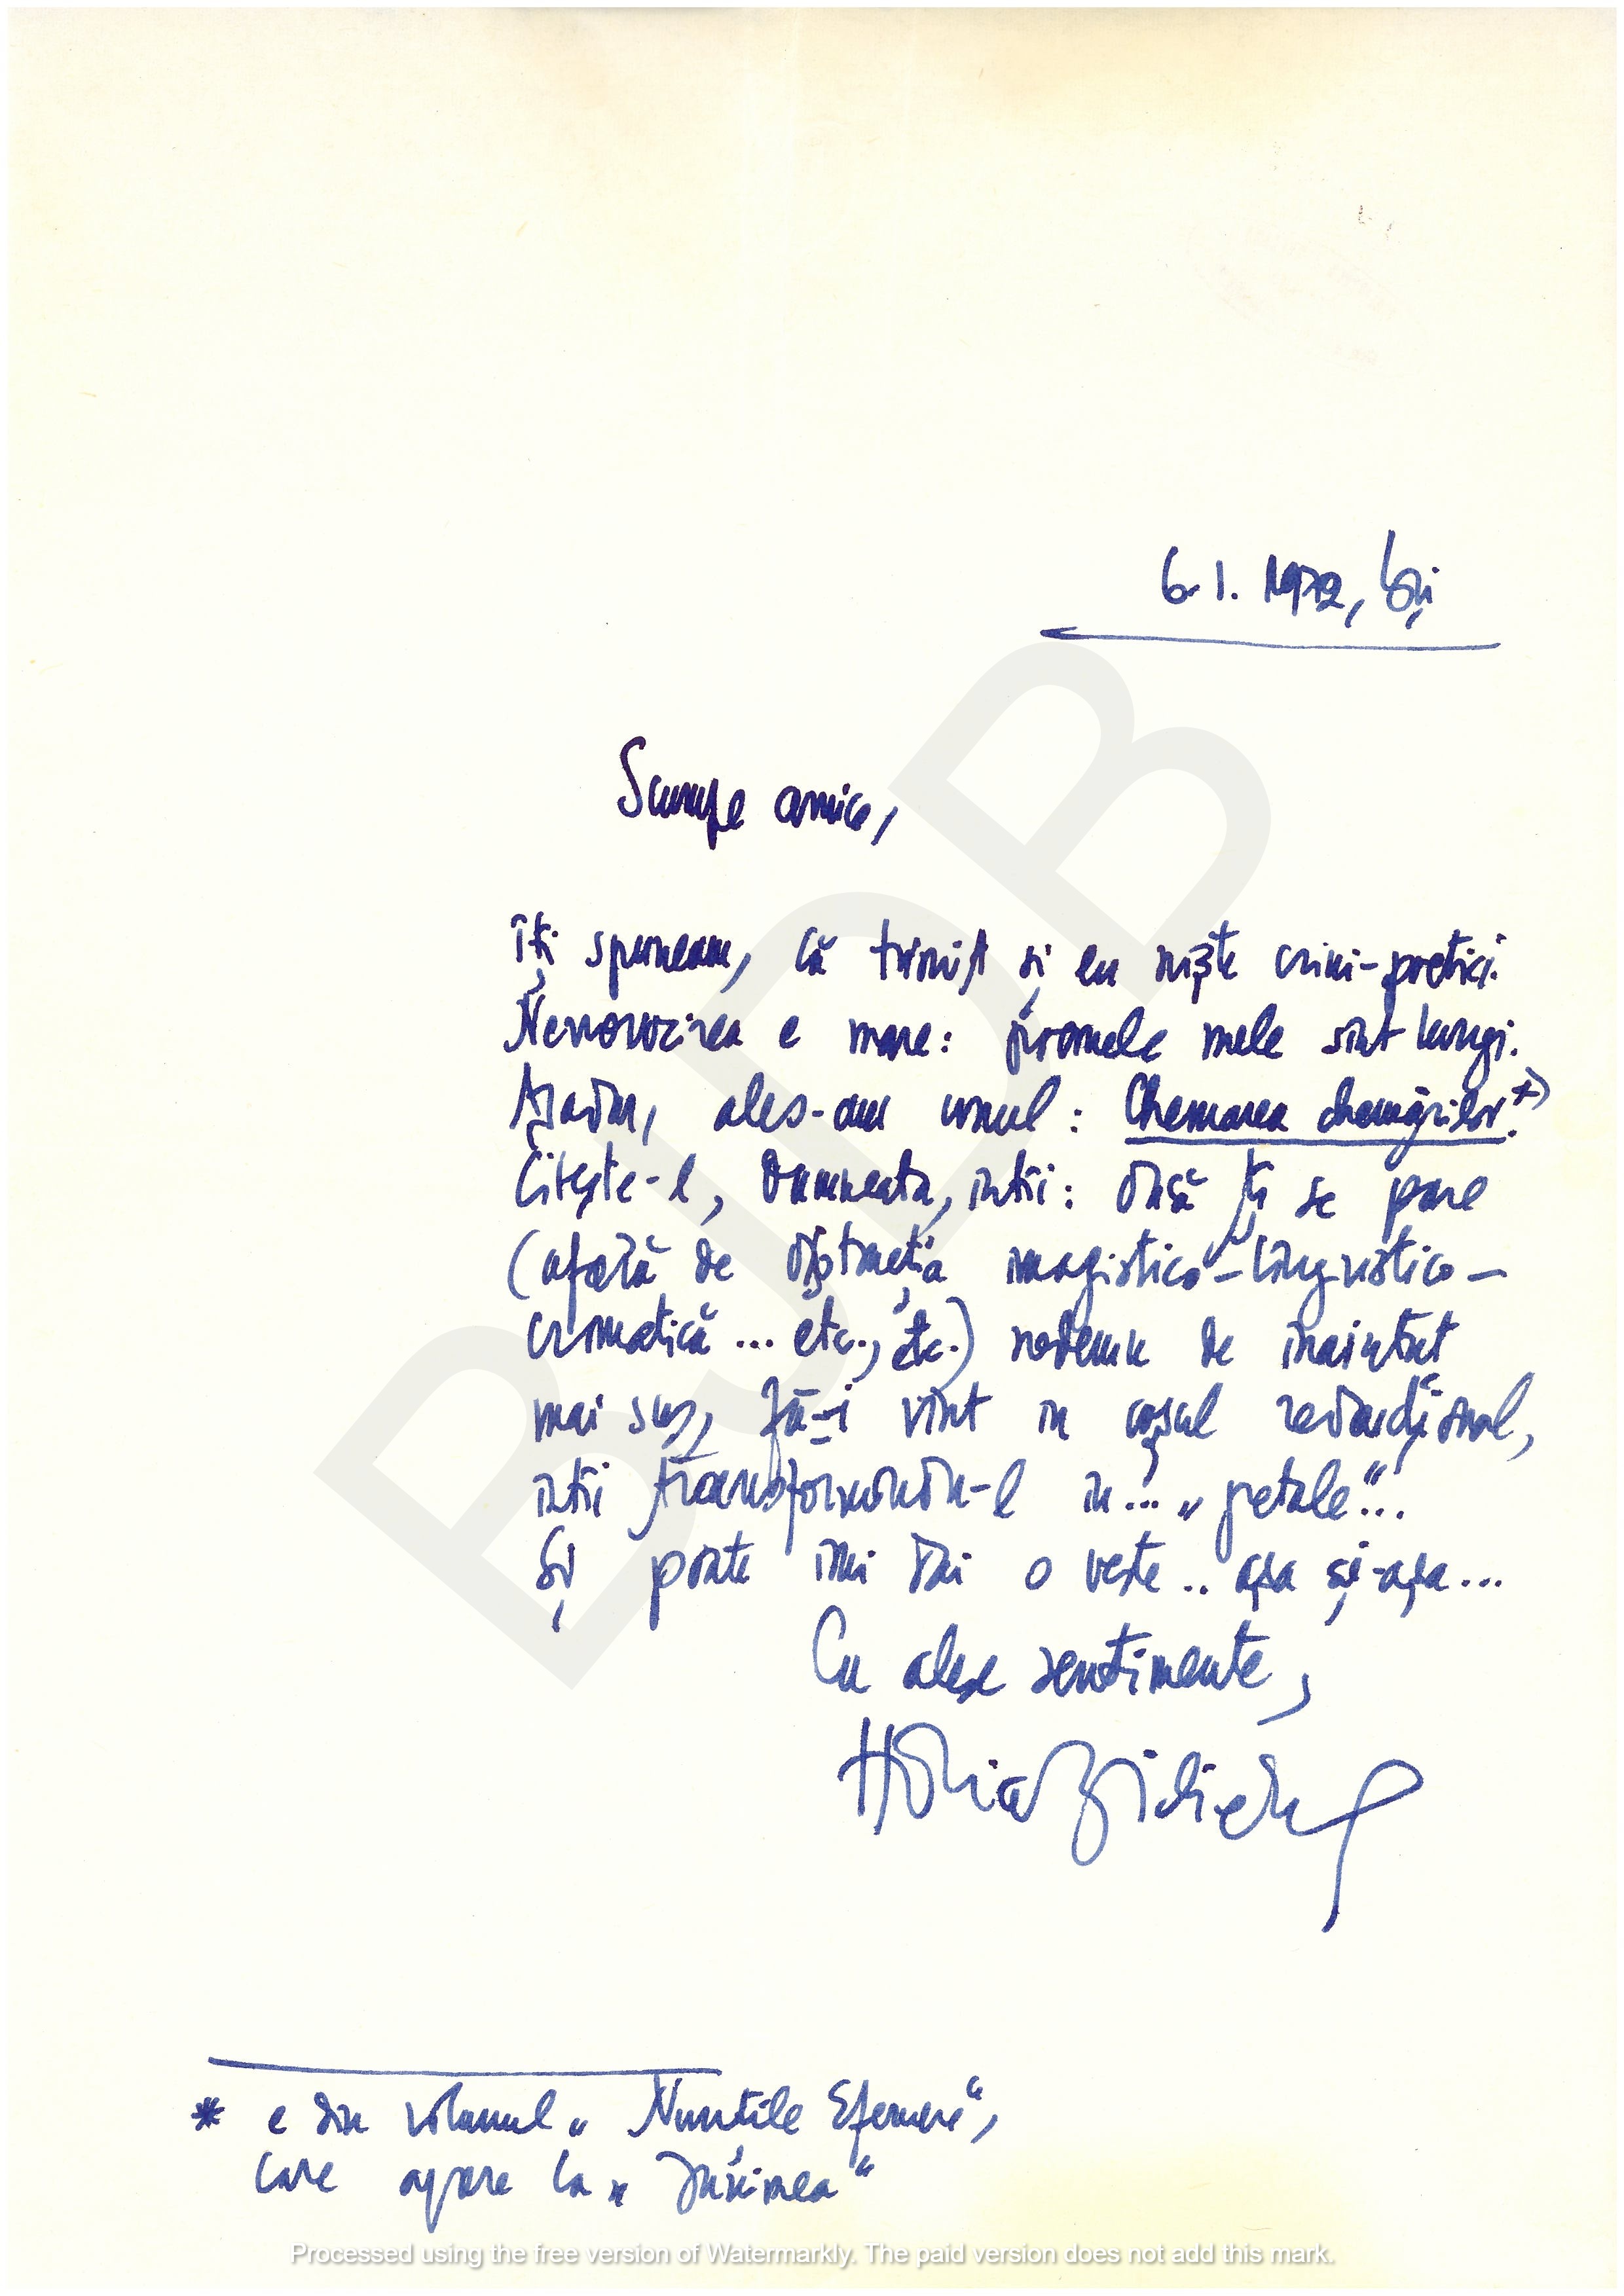 6. I. 1972, Iași
Scumpe amice,
îți spuneam, că trimit și eu niște crini-poetici.
Nenorocirea e mare: poemele mele sînt lungi.
Așadar, ales-am unul: Chemarea chemărilor.*)
Citește-l, Dumneata, întîi: dacă ți se pare
(afară de imagistico-lingvistico-
cromatică ... etc., etc.) nedemn de înaintat
mai sus, fă-i vînt în coșul redacțional,
întîi transformîndu-l în... „petale"...
Și poate îmi dai o veste.. așa și-așa...
Cu alese sentimente,
Horia Zilieru
* e din volumul „Nunțile Efemere",
care apare la „Junimea"
BJDB
Processed using the free version of Watermarkly. The paid version does not add this mark.